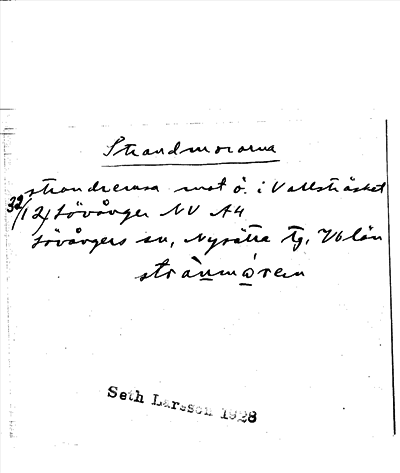 Strandmorarna
strandremsa mot ö. i Vallsträsket
32/12/ Lövånger NV A4
Lövångers sn, Nysätra tg, Vb län
strànmóren
Seth Larsson 1928